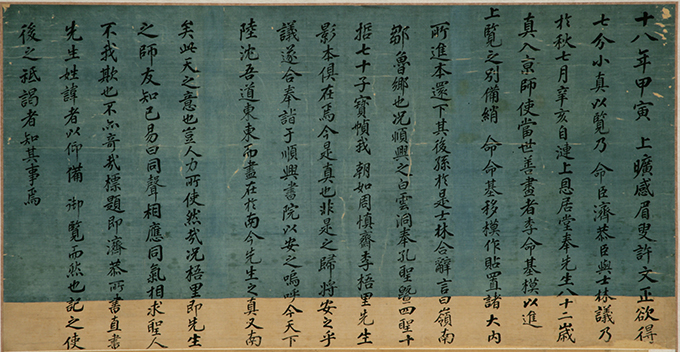 十八年甲寅 上曠感眉叟許文正欲得
七分小真以覽乃 命臣濟恭臣與士林議乃
於秋七月辛亥自漣上恩居堂奉先生八十二歲
真入京師使當世善畫者李命基模以進
上覽之別備綃 命命基移模作貼置諸大內
所進本還下其後孫於是士林合辭言曰嶺南
鄒魯鄉也況順興之白雲洞奉孔聖曁四聖十
哲七十子寶幀我 朝如周愼齋李梧里先生
影本俱在焉今是真也非是之歸將安之乎
議遂合奉詣于順興書院以安之嗚呼今天下
陸沈吾道東東而盡在於南今先生之真又南
矣此天之意也豈人力所使然哉況梧里即先生
之師友知己易曰同聲相應同氣相求聖人
不我欺也不亦奇哉標題即濟恭所書直書
先生姓諱者以仰備 御覽而然也記之使
後之祗謁者知其事焉